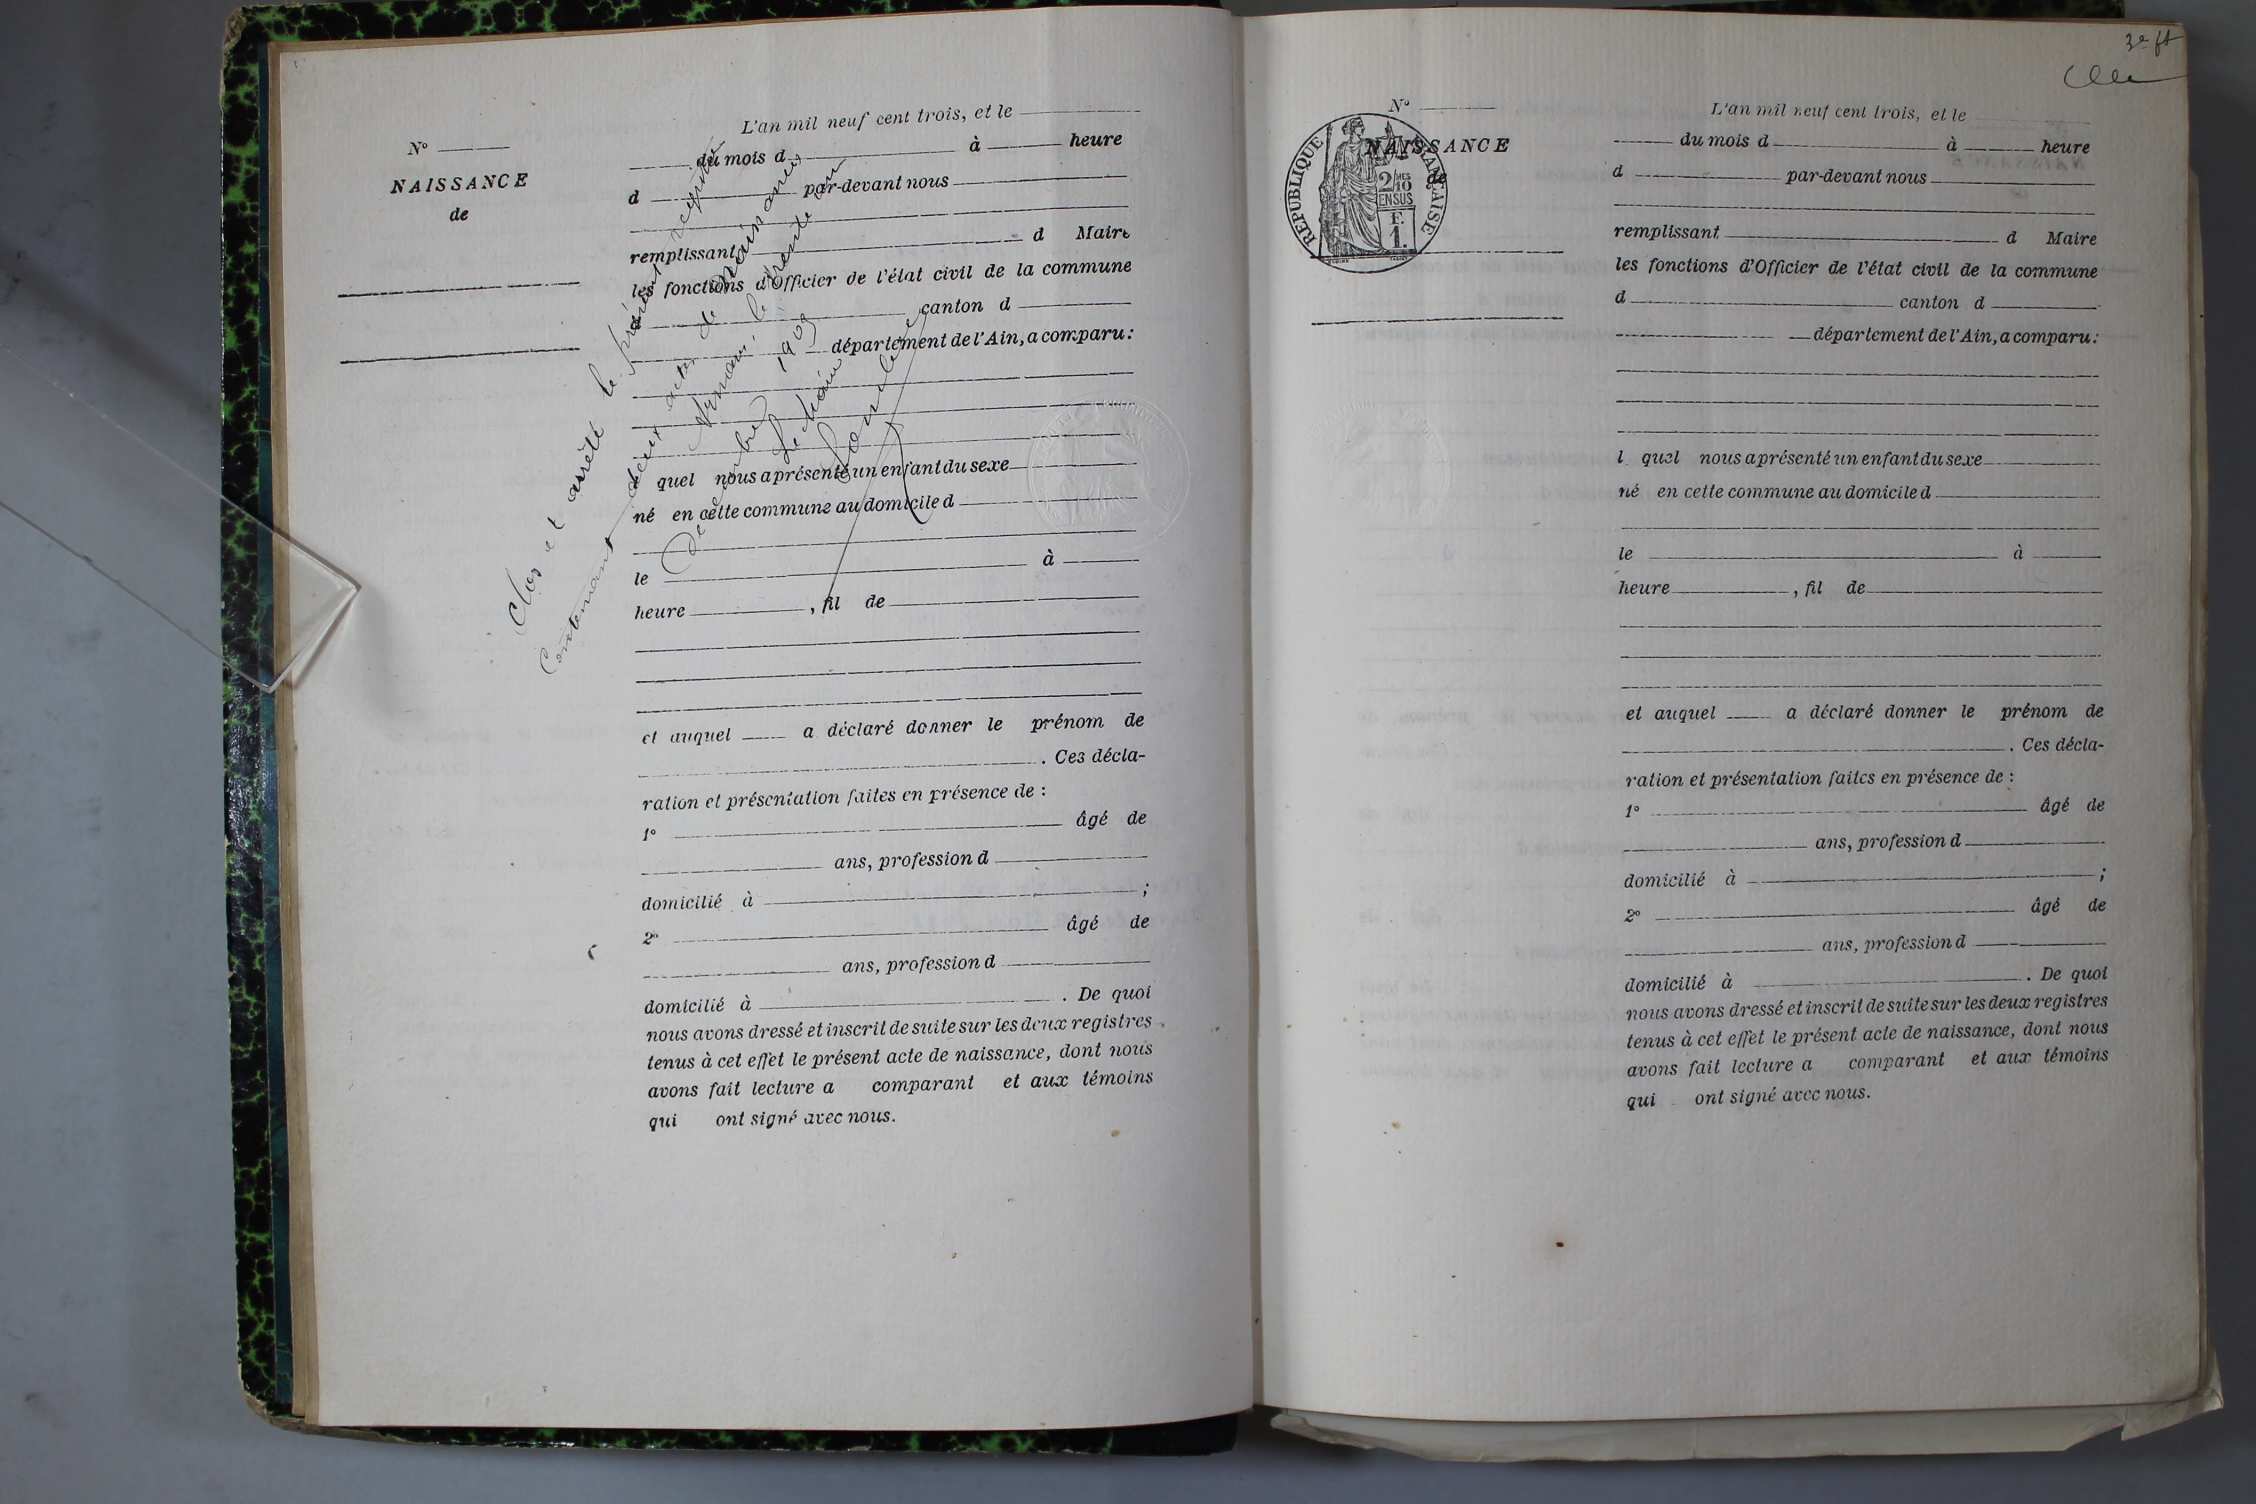 N°
NAISSANCE
de
L'an mil neuf cent trois, et le
du mois d à heure
d par-devant nous
remplissant d Maire
les fonctions d'Officier de l'état civil de la commune
d canton d
département de l'Ain, a comparu:
l quel nous a présenté un enfant du sexe
né en cette commune au domicile d
le à
heure , fil de
et auquel a déclaré donner le prénom de
. Ces décla-
ration et présentation faites en présence de :
1° âgé de
ans, profession d
domicilié à ;
2° âgé de
ans, profession d
domicilié à . De quoi
nous avons dressé et inscrit de suite sur les deux registres
tenus à cet effet le présent acte de naissance, dont nous
avons fait lecture a comparant et aux témoins
qui ont signé avec nous.
Clos et arrêté le présent registre
Contenant deux actes de naissances
le trente un
décembre 1903
Le Maire
3e ft
N°
NAISSANCE
de
RÉPUBLIQUE FRANÇAISE
2 MES
10
EN SUS
F.
1.
L'an mil neuf cent trois, et le
du mois d à heure
d par-devant nous
remplissant d Maire
les fonctions d'Officier de l'état civil de la commune
d canton d
département de l'Ain, a comparu:
l quel nous a présenté un enfant du sexe
né en cette commune au domicile d
le à
heure , fil de
et auquel a déclaré donner le prénom de
. Ces décla-
ration et présentation faites en présence de :
1° âgé de
ans, profession d
domicilié à ;
2° âgé de
ans, profession d
domicilié à . De quoi
nous avons dressé et inscrit de suite sur les deux registres
tenus à cet effet le présent acte de naissance, dont nous
avons fait lecture a comparant et aux témoins
qui ont signé avec nous.